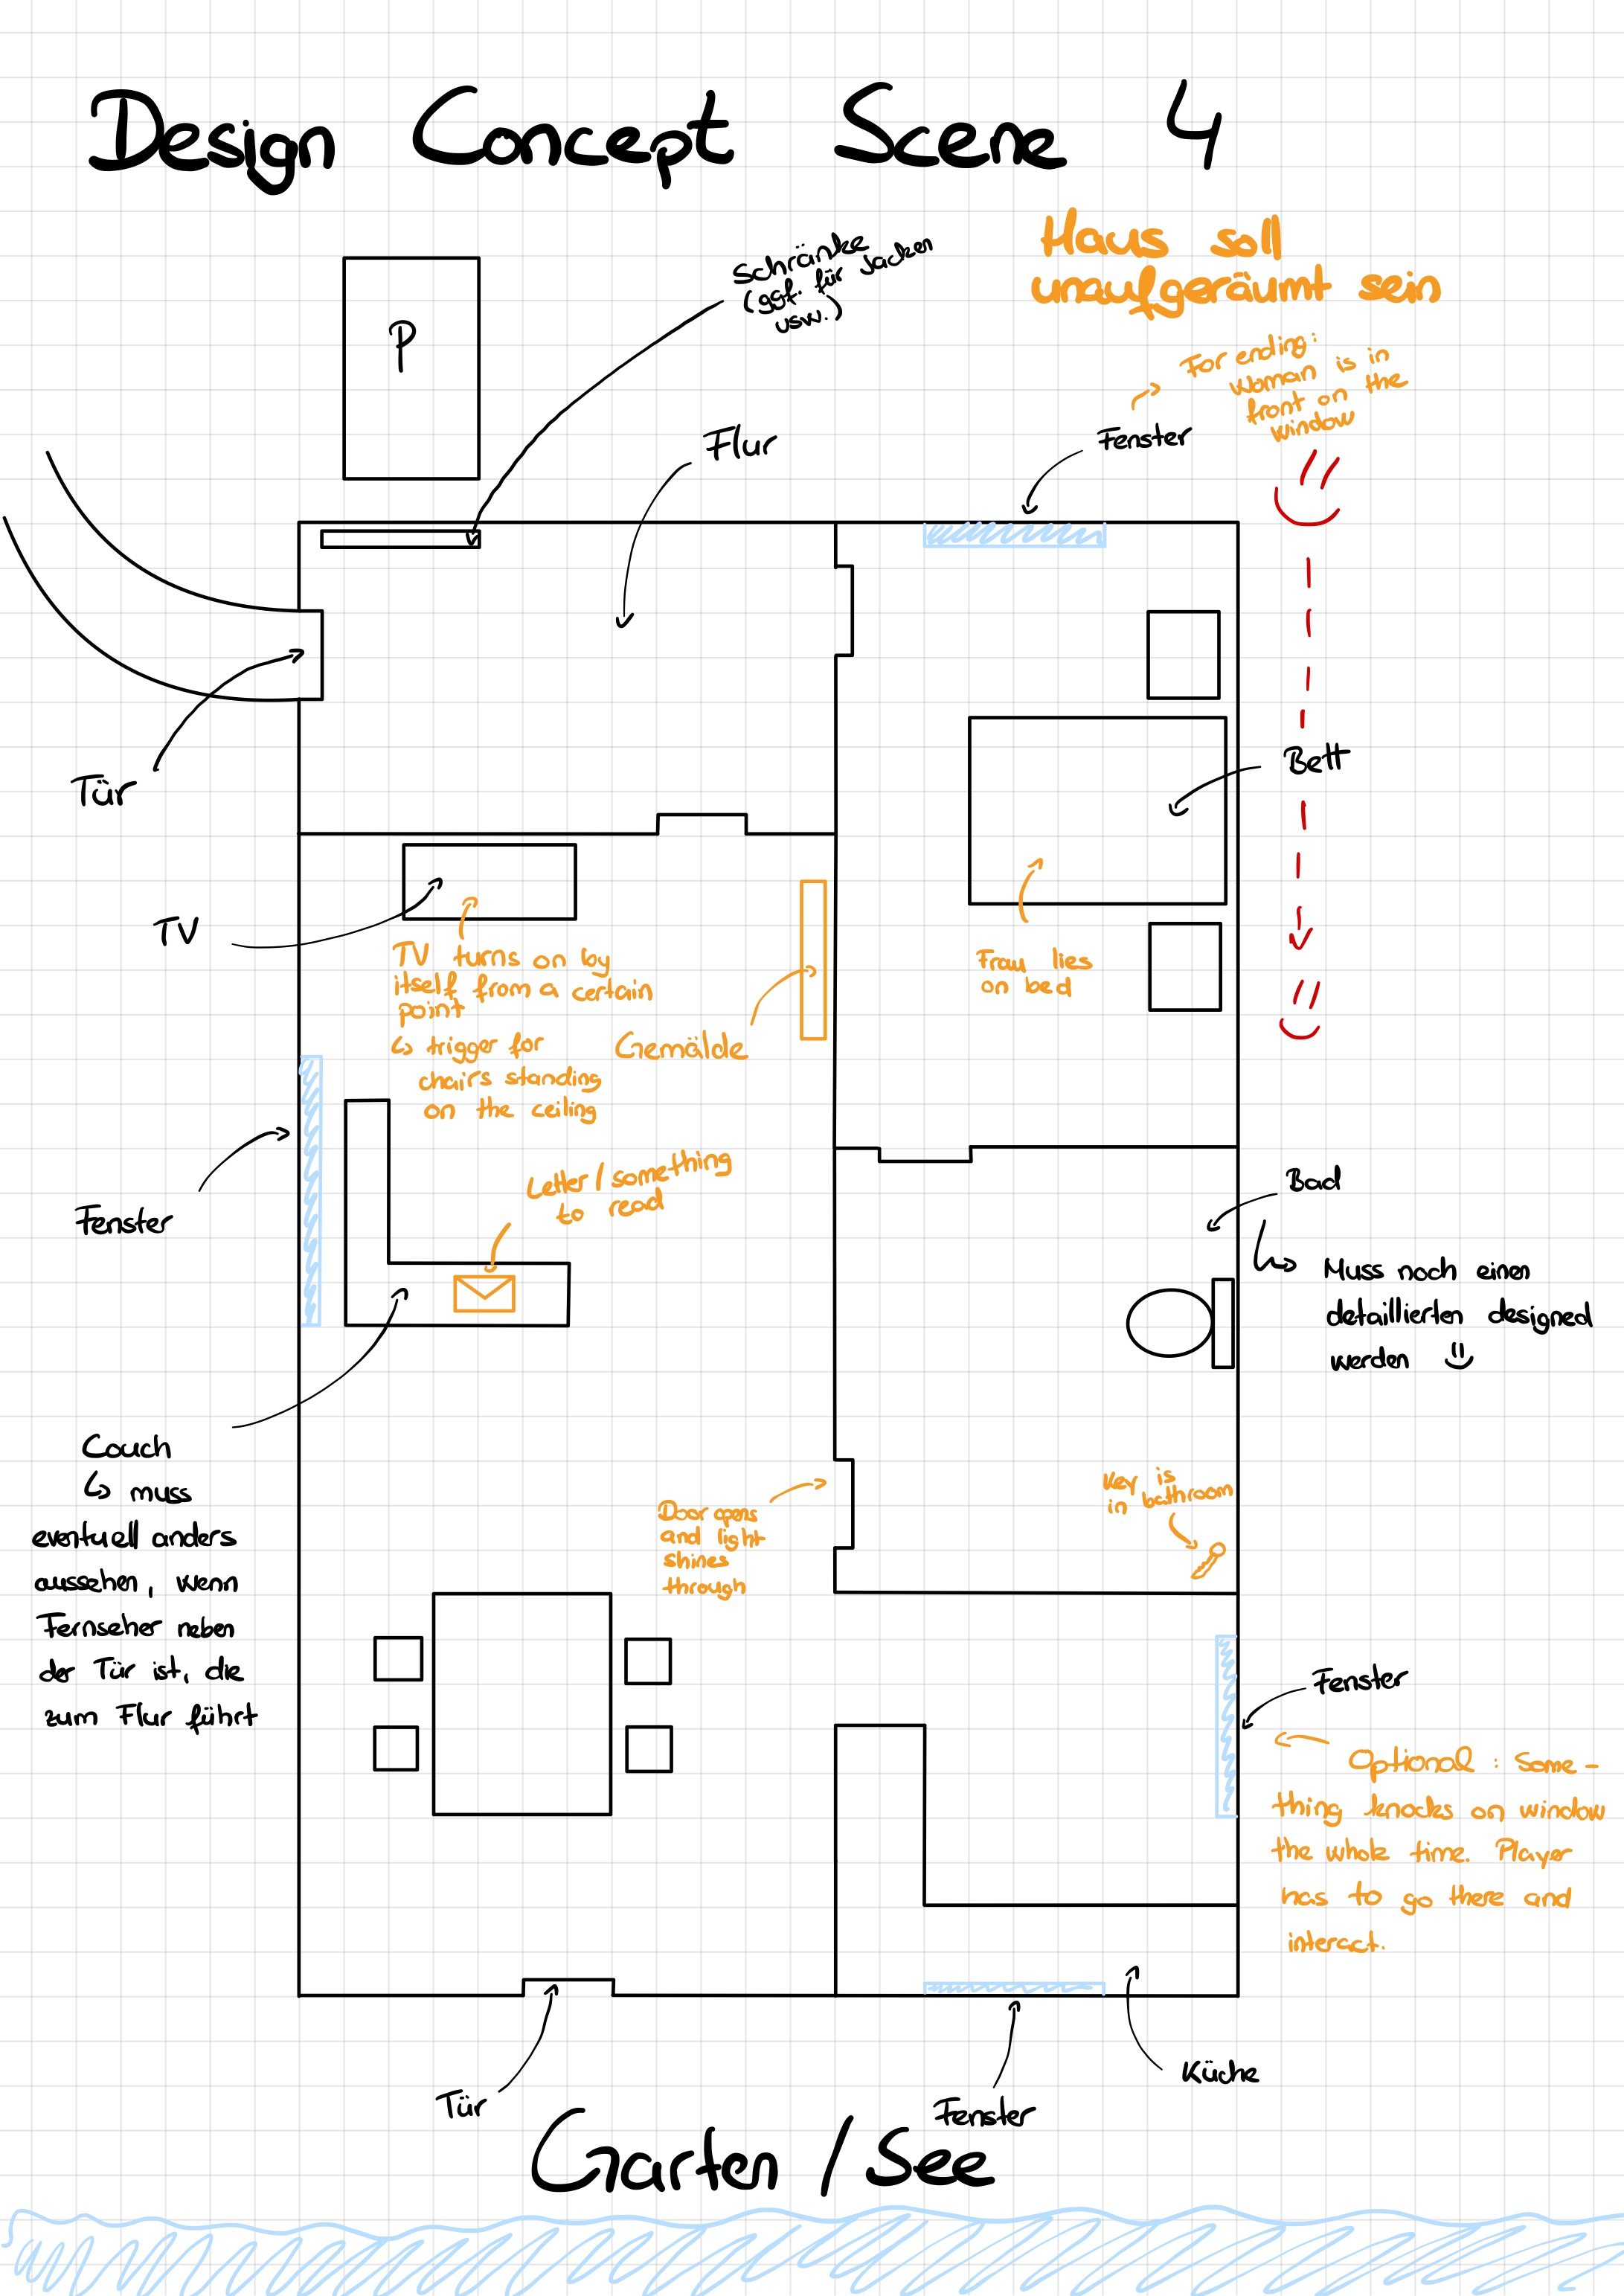 Design Concept Scene 4
Haus soll
unaufgeräumt sein
Schränke
(ggf. für Jacken
usw.)
P
For ending:
woman is in
front on the
window
Flur
Fenster
Tür
Bett
TV
TV turns on by
itself from a certain
point
↳ trigger for
chairs standing
on the ceiling
Gemälde
Frau lies
on bed
Letter / something
to read
Fenster
Bad
↳ Muss noch einen
detaillierten designed
werden
Couch
↳ muss
eventuell anders
aussehen, wenn
Fernseher neben
der Tür ist, die
zum Flur führt
Door opens
and light
shines
through
Key is
in bathroom
Fenster
Optional: Some-
thing knocks on window
the whole time. Player
has to go there and
interact.
Küche
Tür
Fenster
Garten / See